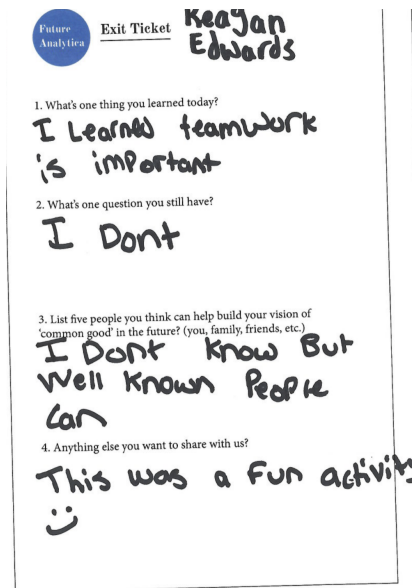 Future
Analytica
Exit Ticket
Keagan
Edwards
1. What's one thing you learned today?
I Learned teamwork
is important
2. What's one question you still have?
I Dont
3. List five people you think can help build your vision of
'common good' in the future? (you, family, friends, etc.)
I Dont know But
Well known People
Can
4. Anything else you want to share with us?
This was a Fun activity
:)